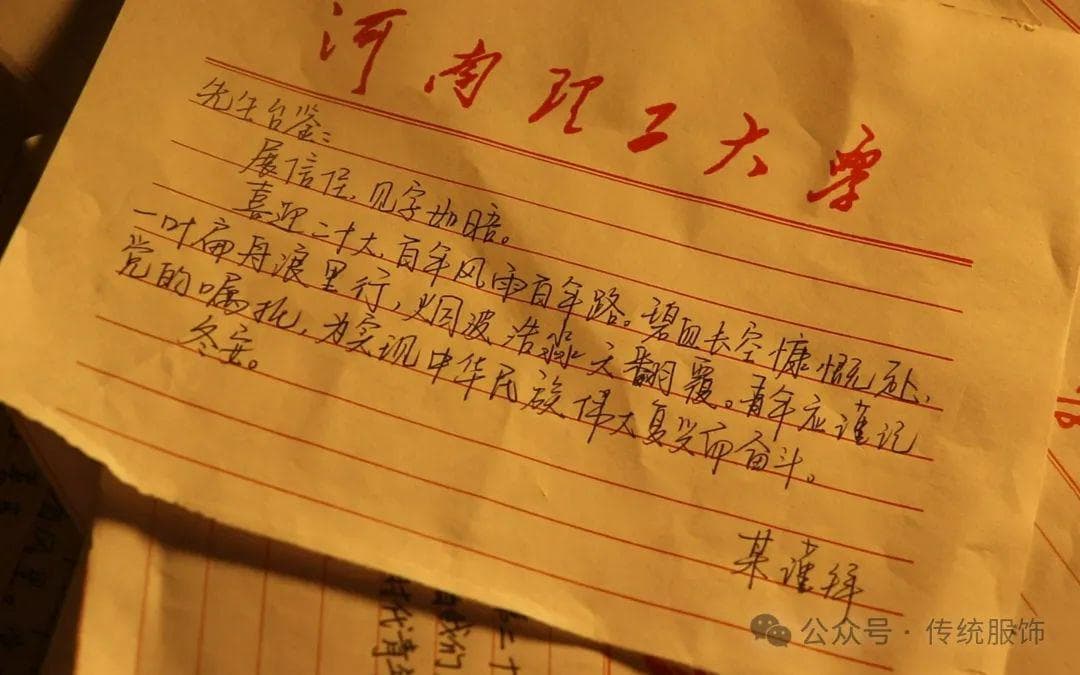 河南理工大学
先生台鉴：
展信佳，见字如晤。
喜迎二十大，百年风雨百年路。碧血长空慷慨处、
一叶扁舟浪里行，烟波浩淼天翻覆。青年应谨记
党的嘱托，为实现中华民族伟大复兴而奋斗。
冬安。
某谨拜
公众号·传统服饰